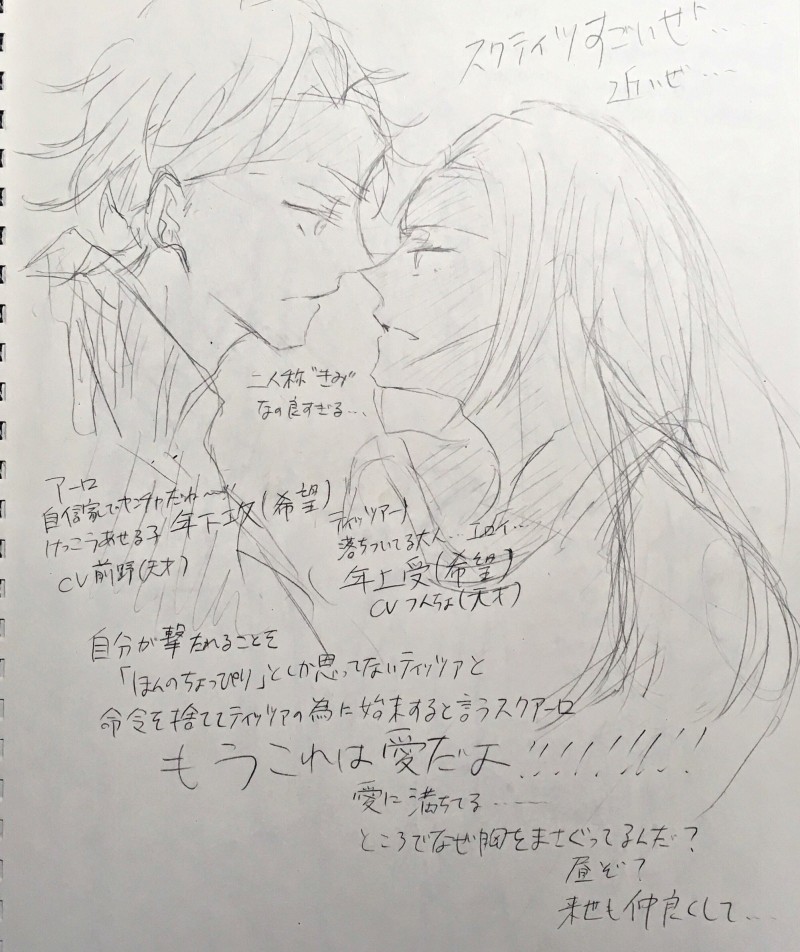 スクティツすごいゼ…
近いぜ…
二人称"きみ"
なの良すぎる…
アーロ
自信家でヤンチャだね〜
けっこうあせる子 年下攻(希望)
CV 前野(天才)
ティッツァー
落ちついてる大人…エロイ…
年上受(希望)
CV つんちょ(天才)
自分が撃たれることを
「ほんのちょっぴり」としか思ってないティッツァと
命令を捨ててティッツァの為に始末すると言うスクアーロ
もうこれは愛だよ!!!!!!!!
愛に満ちてる……
ところでなぜ胸をまさぐってるんだ?
昼ぞ?
来世も仲良くして…